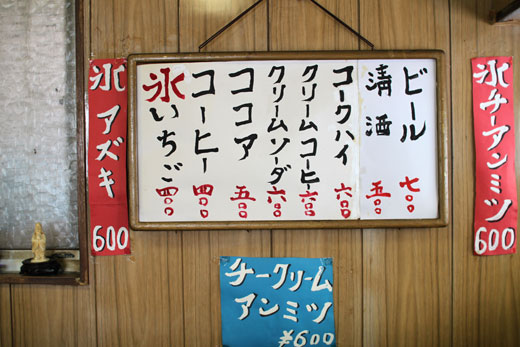 氷チーアンミツ 600
ビール 七〇〇
清酒 五〇〇
コークハイ 六〇〇
クリームコーヒー 六〇〇
クリームソーダ 六〇〇
ココア 五〇〇
コーヒー 四〇〇
氷いちご 四〇〇
氷アズキ 600
チークリーム
アンミツ
¥600